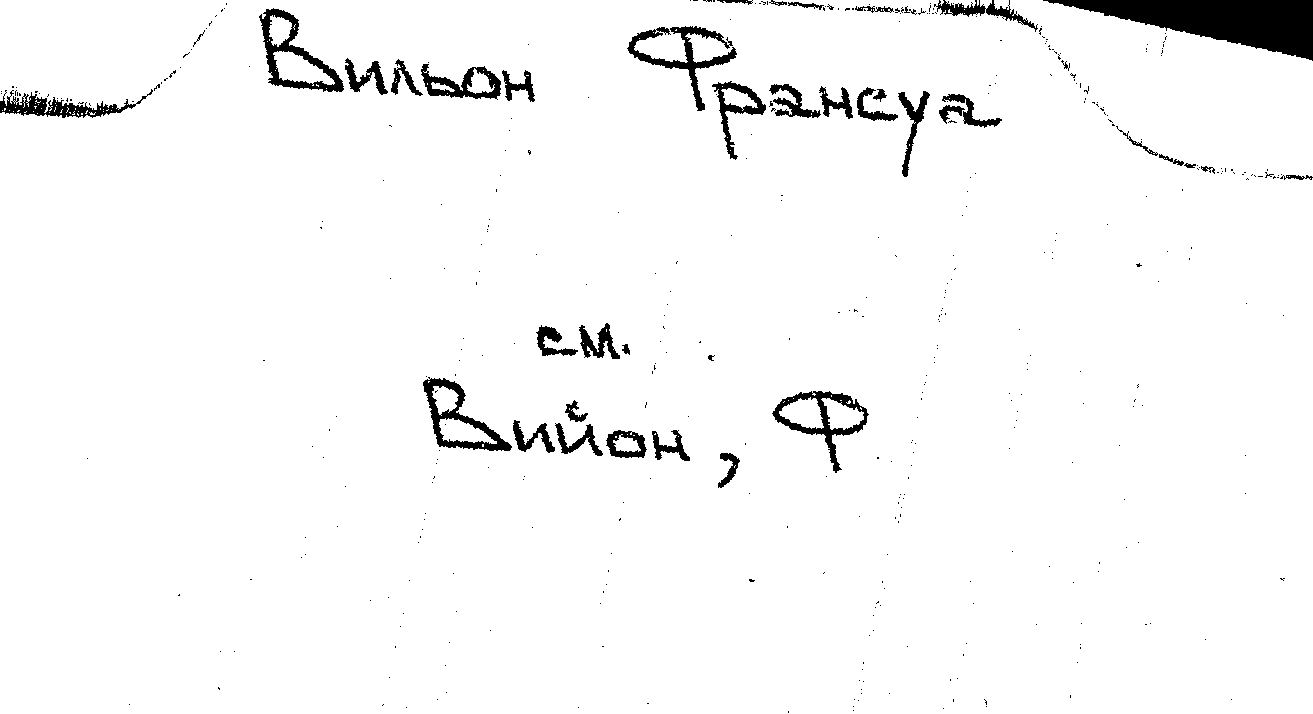 Вильон Франсуа
см.
Вийон, Ф